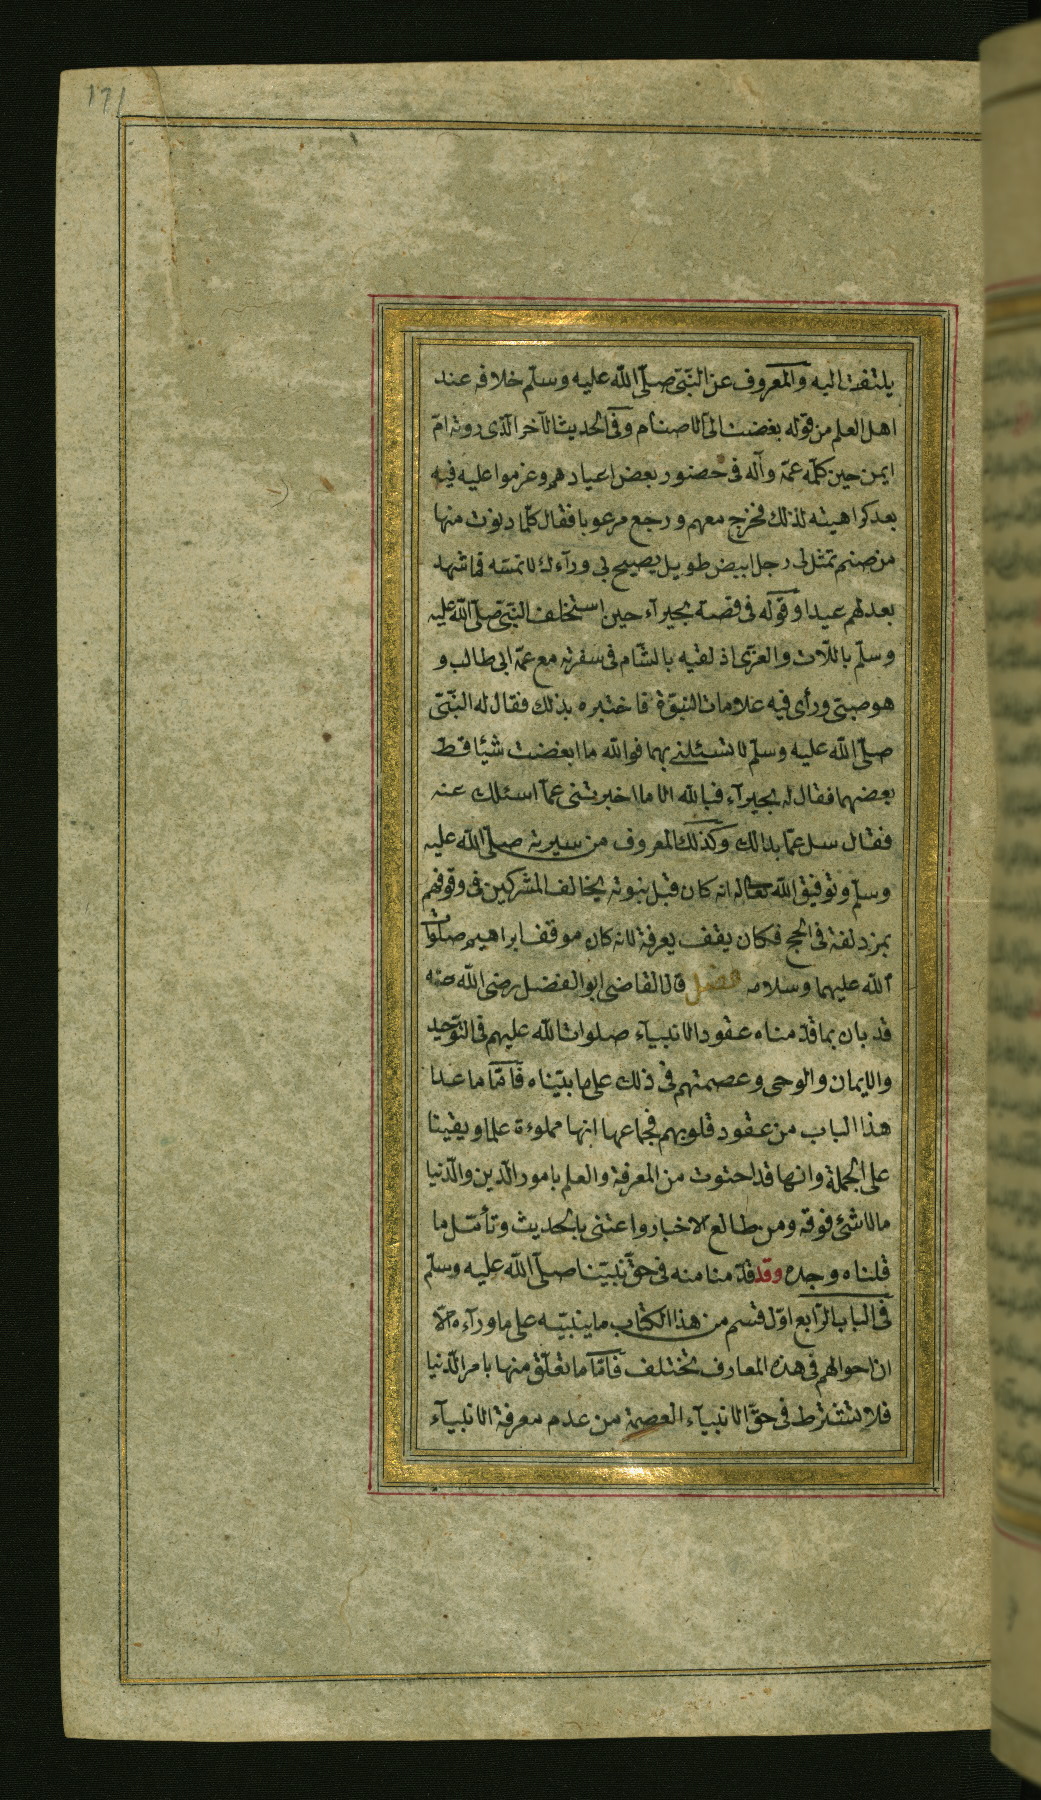 171
يلتفت اليه والمعروف عن النبّى صلّى اللّه عليه وسلّم خلافه عند
اهل العلم من قوله بغضت الىّ الاصنام وفى الحديث الآخر الّذى روته امّ
ايمن حين كلّمه عمّه وآله فى حضور بعض اعيادهم وعزموا عليه فيه
بعد كراهيته لذلك فخرج معهم ورجع مرعوبا فقال كلّما دنوت منها
من صنم تمثل لى رجل ابيض طويل يصيح بى ورآءك لا تمسّه فما شهد
بعد لهم عيدا وقوله فى قصة بحيرآء حين استخلف النبّى صلّى اللّه عليه
وسلّم باللّات والعزّى اذ لقيه بالشّام فى سفرته مع عمّه ابى طالب و
هو صبىّ ورأى فيه علامات النبّوة فاختبره بذلك فقال له النبّى
صلّى اللّه عليه وسلّم لا تسئلنى بهما فواللّه ما ابغضت شيئا قطّ
بعضهما فقال له بحيرآء فباللّه الا ما اخبرتنى عمّا اسئلك عنه
فقال سل عمّا بدالك وكذلك المعروف من سيرته صلّى اللّه عليه
وسلّم وتوفيق اللّه تعالى له انه كان قبل نبوته يخالف المشركين فى وقوفهم
بمزدلفة فى الحج فكان يقف بعرفة لانه كان موقف ابراهيم صلوات
اللّه عليهما وسلامه فصل قال القاضى ابو الفضل رضى اللّه عنه
قد بان بما قدّمناه عقود الانبيآء صلوات اللّه عليهم فى التوّحيد
والايمان والوحى وعصمتهم فى ذلك على ما بيّناه فامّا ما عدا
هذا الباب من عقود قلوبهم فجماعها انها مملوءة علما ويقينا
على الجملة وانها قد احتوت من المعرفة والعلم بامور الدّين والدّنيا
ما لا شئ فوقه ومن طالع الاخبار واعتنى بالحديث وتأمّل ما
قلناه وجده وقد قدّمنا منه فى حقّ نبيّنا صلّى اللّه عليه وسلّم
فى الباب الرّابع اوّل قسم من هذا الكتاب ما ينبّه على ما ورآءه الّا
ان احوالهم فى هذه المعارف تختلف فامّا ما تعلّق منها بامر الدّنيا
فلا تشترط فى حقّ الانبيآء العصمة من عدم معرفة الانبيآء